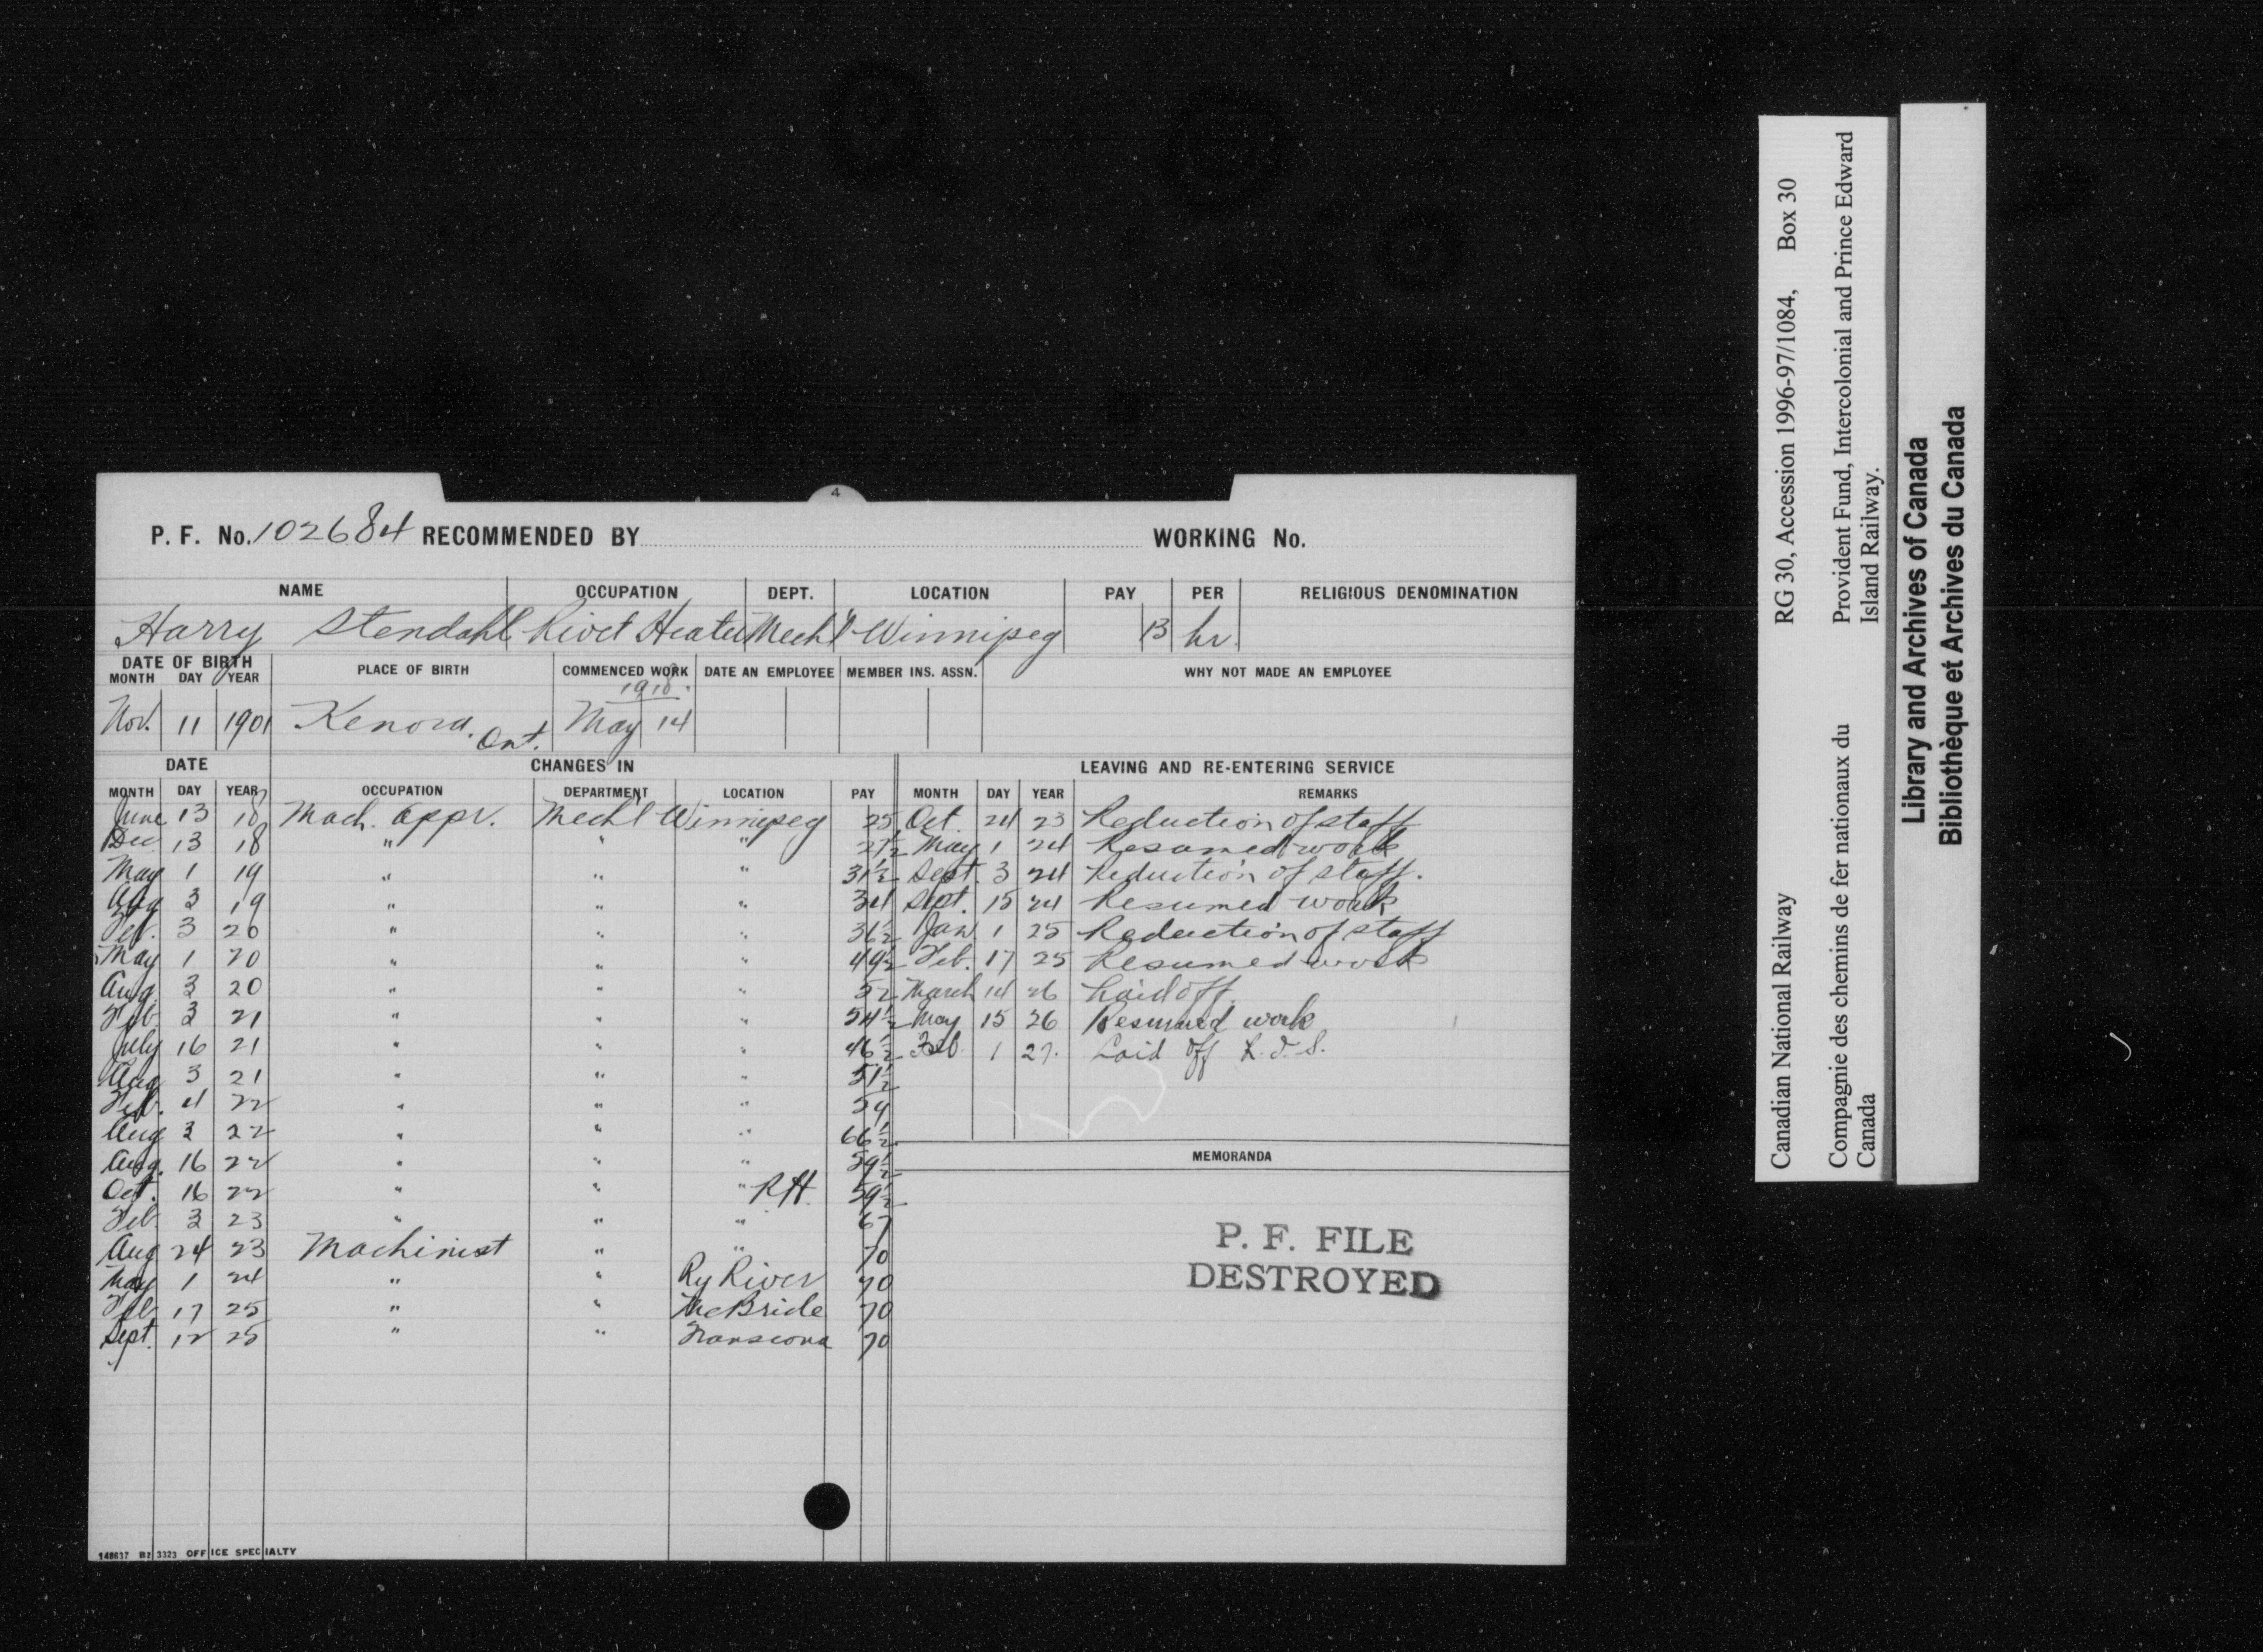 4
P. F. No. 102684 RECOMMENDED BY WORKING No.
NAME OCCUPATION DEPT. LOCATION PAY PER RELIGIOUS DENOMINATION
Harry Stendahl Rivet Heater Mech'l Winnipeg 13 hr.
DATE OF BIRTH PLACE OF BIRTH COMMENCED WORK DATE AN EMPLOYEE MEMBER INS. ASSN. WHY NOT MADE AN EMPLOYEE
MONTH DAY YEAR
1918.
Nov. 11 1901 Kenora. Ont. May 14
DATE CHANGES IN LEAVING AND RE-ENTERING SERVICE
MONTH DAY YEAR OCCUPATION DEPARTMENT LOCATION PAY MONTH DAY YEAR REMARKS
June 13 18 Mach. appr. Mech'l Winnipeg 25 Oct. 24 23 Reduction of staff
Dec 13 18 " " " 27½ May 1 24 Resumed work
May 1 19 " " " 31½ Sept. 3 24 Reduction of staff.
Aug 3 19 " " " 34 Sept. 15 24 Resumed work
Feb. 3 20 " " " 36½ Jan 1 25 Reduction of staff
May 1 20 " " " 49½ Feb. 17 25 Resumed work
Aug. 3 20 " " " 52 March 14 26 Laid off.
Feb 3 21 " " " 54½ May 15 26 Resumed work
July 16 21 " " " 46½ Feb. 1 27. Laid off
Aug 3 21 " " " 51½
Feb. 4 22 " " " 59
Aug 3 22 " " " 66½
Aug. 16 22 " " " 59½
Oct. 16 22 " " " R.H. 59½
Feb 3 23 " " " 67
Aug 24 23 Machinist " " 70
May 1 24 " " Ry River 70
Feb 17 25 " " McBride 70
Sept. 12 25 " " Transcona 70
MEMORANDA
P. F. FILE
DESTROYED
148637 B2 3323 OFFICE SPECIALTY
Canadian National Railway RG 30, Accession 1996-97/1084, Box 30
Compagnie des chemins de fer nationaux du Provident Fund, Intercolonial and Prince Edward
Canada Island Railway.
Library and Archives of Canada
Bibliothèque et Archives du Canada